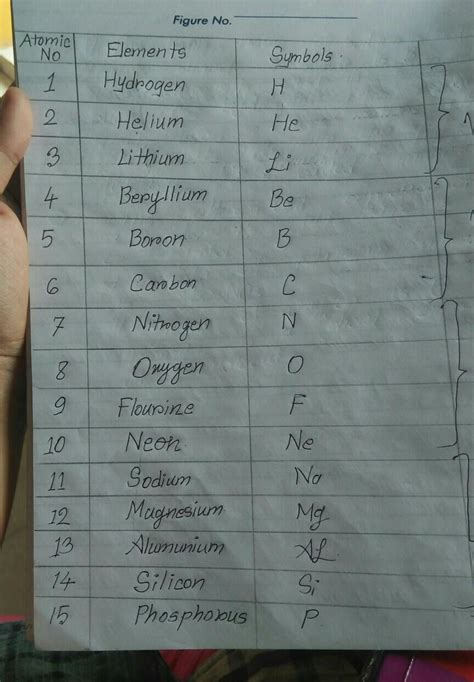 Figure No.
Atomic No Elements Symbols
1 Hydrogen H
2 Helium He
3 Lithium Li
4 Beryllium Be
5 Boron B
6 Carbon C
7 Nitrogen N
8 Oxygen O
9 Flourine F
10 Neon Ne
11 Sodium Na
12 Magnesium Mg
13 Alumunium Al
14 Silicon Si
15 Phosphorus P